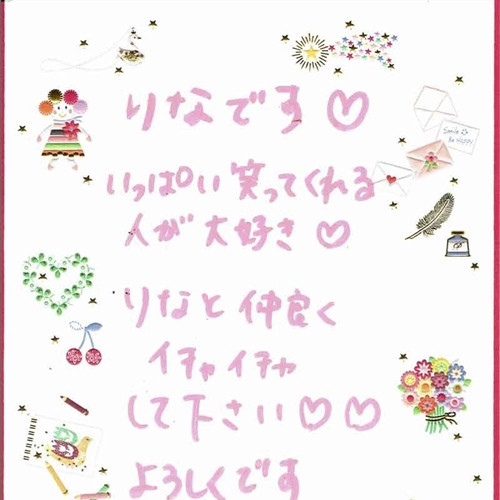 りなです♡
いっぱい笑ってくれる
人が大好き♡
りなと仲良く
イチャイチャ
して下さい♡♡
よろしくです
Smile
Be HAPPY